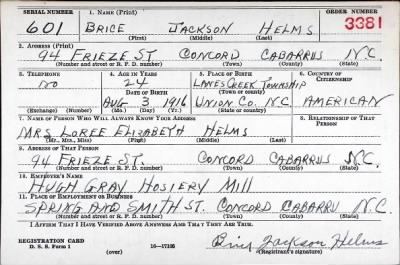 SERIAL NUMBER 1. NAME (Print) ORDER NUMBER
601 BRICE JACKSON HELMS 3381
(First) (Middle) (Last)
2. ADDRESS (Print)
94 FRIEZE ST CONCORD CABARRUS N.C.
(Number and street or R. F. D. number) (Town) (County) (State)
3. TELEPHONE 4. AGE IN YEARS 5. PLACE OF BIRTH 6. COUNTRY OF CITIZENSHIP
NO 24 LANES CREEK TOWNSHIP
DATE OF BIRTH (Town or county)
AUG 3 1916 UNION CO. N.C. AMERICAN
(Exchange) (Number) (Mo.) (Day) (Yr.) (State or country)
7. NAME OF PERSON WHO WILL ALWAYS KNOW YOUR ADDRESS 8. RELATIONSHIP OF THAT PERSON
MRS LOREE ELIZABETH HELMS
(Mr., Mrs., Miss) (First) (Middle) (Last)
9. ADDRESS OF THAT PERSON
94 FRIEZE ST. CONCORD CABARRUS N.C.
(Number and street or R. F. D. number) (Town) (County) (State)
10. EMPLOYER'S NAME
HUGH GRAY HOSIERY MILL
11. PLACE OF EMPLOYMENT OR BUSINESS
SPRING AND SMITH ST. CONCORD CABARRU N.C.
(Number and street or R. F. D. number) (Town) (County) (State)
I AFFIRM THAT I HAVE VERIFIED ABOVE ANSWERS AND THAT THEY ARE TRUE.
REGISTRATION CARD
D. S. S. Form 1 16—17105 Brice Jackson Helms
(over) (Registrant's signature)